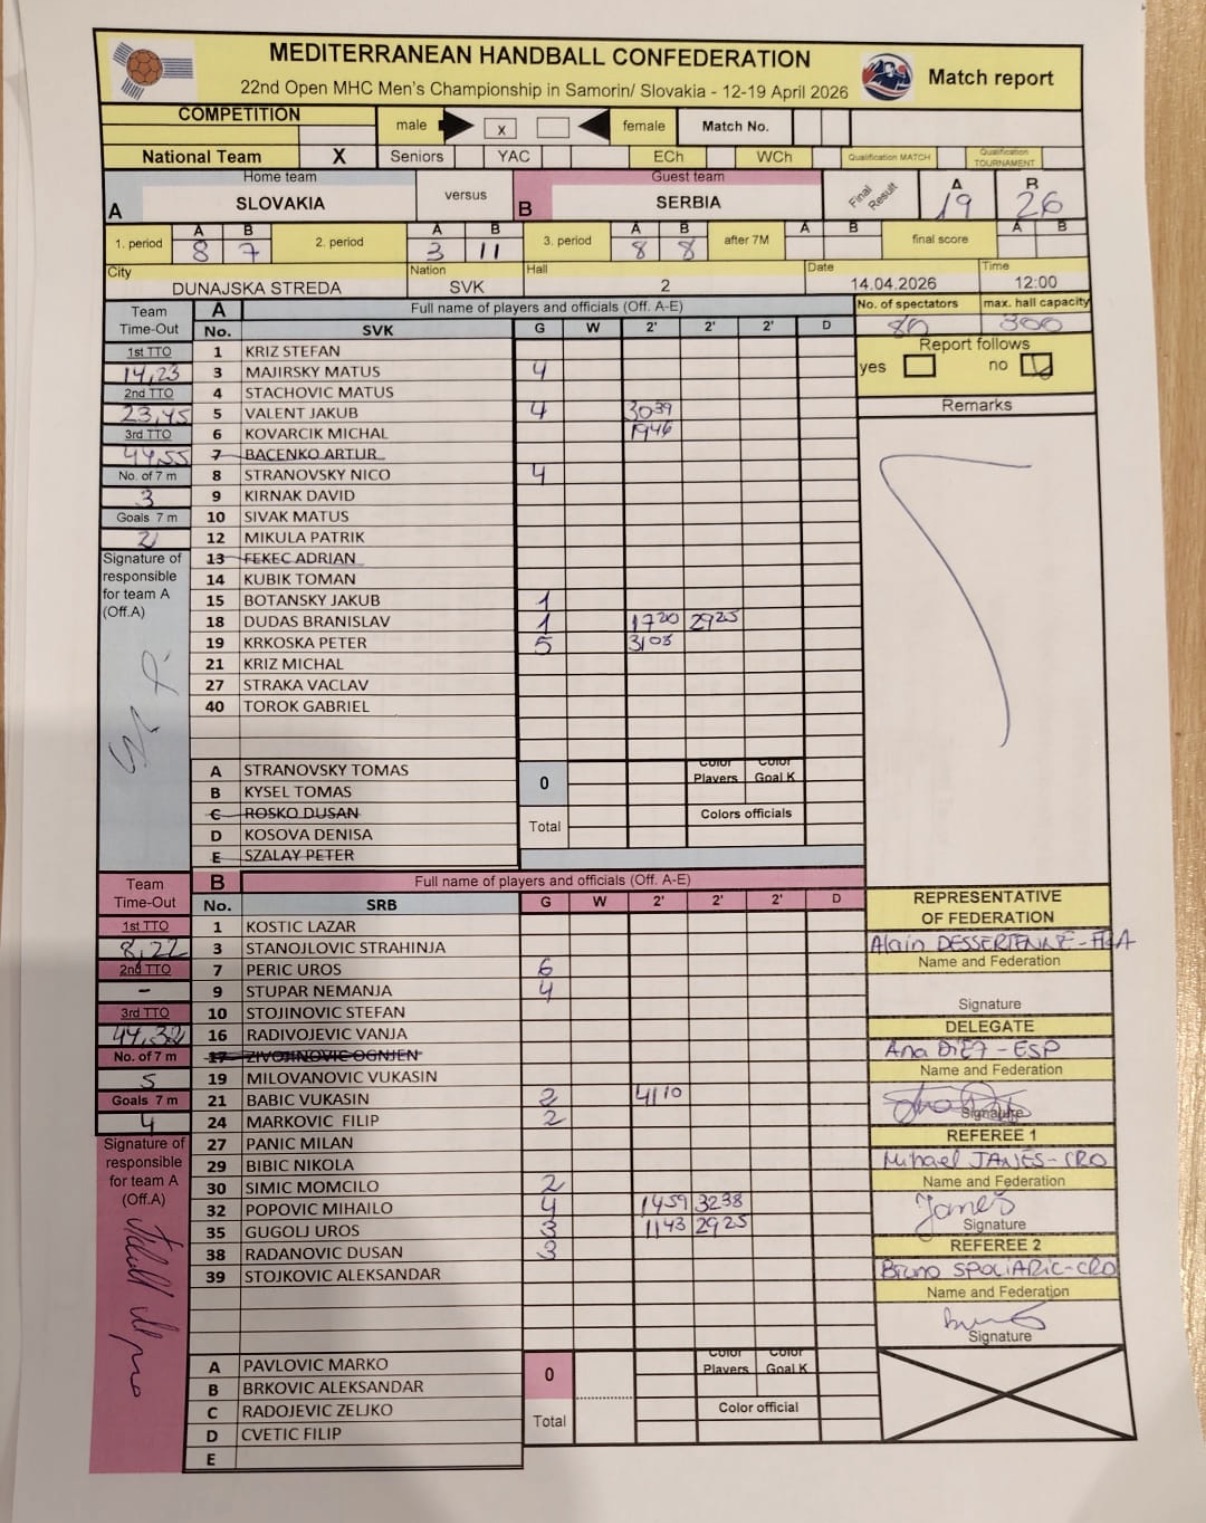 MEDITERRANEAN HANDBALL CONFEDERATION
22nd Open MHC Men's Championship in Samorin/ Slovakia - 12-19 April 2026
Match report
COMPETITION
male x female Match No.
National Team X Seniors YAC ECh WCh Qualification MATCH Qualification TOURNAMENT
Home team versus Guest team Final Result A B
A SLOVAKIA B SERBIA 19 26
1. period A B 2. period A B 3. period A B after 7M A B final score A B
8 7 3 11 8 8
City Nation Hall Date Time
DUNAJSKA STREDA SVK 2 14.04.2026 12:00
Team Time-Out A Full name of players and officials (Off. A-E) No. of spectators max. hall capacity
No. SVK G W 2' 2' 2' D 80 300
1st TTO 1 KRIZ STEFAN Report follows
14,23 3 MAJIRSKY MATUS 4 yes no
2nd TTO 4 STACHOVIC MATUS
23,45 5 VALENT JAKUB 4 3039 Remarks
3rd TTO 6 KOVARCIK MICHAL 1946
44,55 7 BACENKO ARTUR
No. of 7 m 8 STRANOVSKY NICO 4
3 9 KIRNAK DAVID
Goals 7 m 10 SIVAK MATUS
2 12 MIKULA PATRIK
Signature of responsible for team A (Off.A) 13 FEKEC ADRIAN
14 KUBIK TOMAN
15 BOTANSKY JAKUB 1
18 DUDAS BRANISLAV 1 1720 2925
19 KRKOSKA PETER 5 3103
21 KRIZ MICHAL
27 STRAKA VACLAV
40 TOROK GABRIEL
A STRANOVSKY TOMAS 0 Color Players Color Goal K
B KYSEL TOMAS
C ROSKO DUSAN Total Colors officials
D KOSOVA DENISA
E SZALAY PETER
Team Time-Out B Full name of players and officials (Off. A-E) REPRESENTATIVE OF FEDERATION
No. SRB G W 2' 2' 2' D
1st TTO 1 KOSTIC LAZAR
8,22 3 STANOJLOVIC STRAHINJA Alain DESSERTENNE
2nd TTO 7 PERIC UROS 6 Name and Federation
- 9 STUPAR NEMANJA 4
3rd TTO 10 STOJINOVIC STEFAN Signature
44,32 16 RADIVOJEVIC VANJA DELEGATE
No. of 7 m 17 ZIVOTINOVIC OGNJEN Ana DIEZ - ESP
5 19 MILOVANOVIC VUKASIN Name and Federation
Goals 7 m 21 BABIC VUKASIN 2 4110
4 24 MARKOVIC FILIP 2 Signature
Signature of responsible for team A (Off.A) 27 PANIC MILAN REFEREE 1
29 BIBIC NIKOLA Mihael JANEŠ - CRO
30 SIMIC MOMCILO 2 Name and Federation
32 POPOVIC MIHAILO 4 1459 3238 Janeš
35 GUGOLJ UROS 3 1143 2925 Signature
38 RADANOVIC DUSAN 3 REFEREE 2
39 STOJKOVIC ALEKSANDAR Bruno SPOLJARIC-CRO
Name and Federation
Signature
A PAVLOVIC MARKO 0 Color Players Color Goal K
B BRKOVIC ALEKSANDAR
C RADOJEVIC ZELJKO Total Color official
D CVETIC FILIP
E